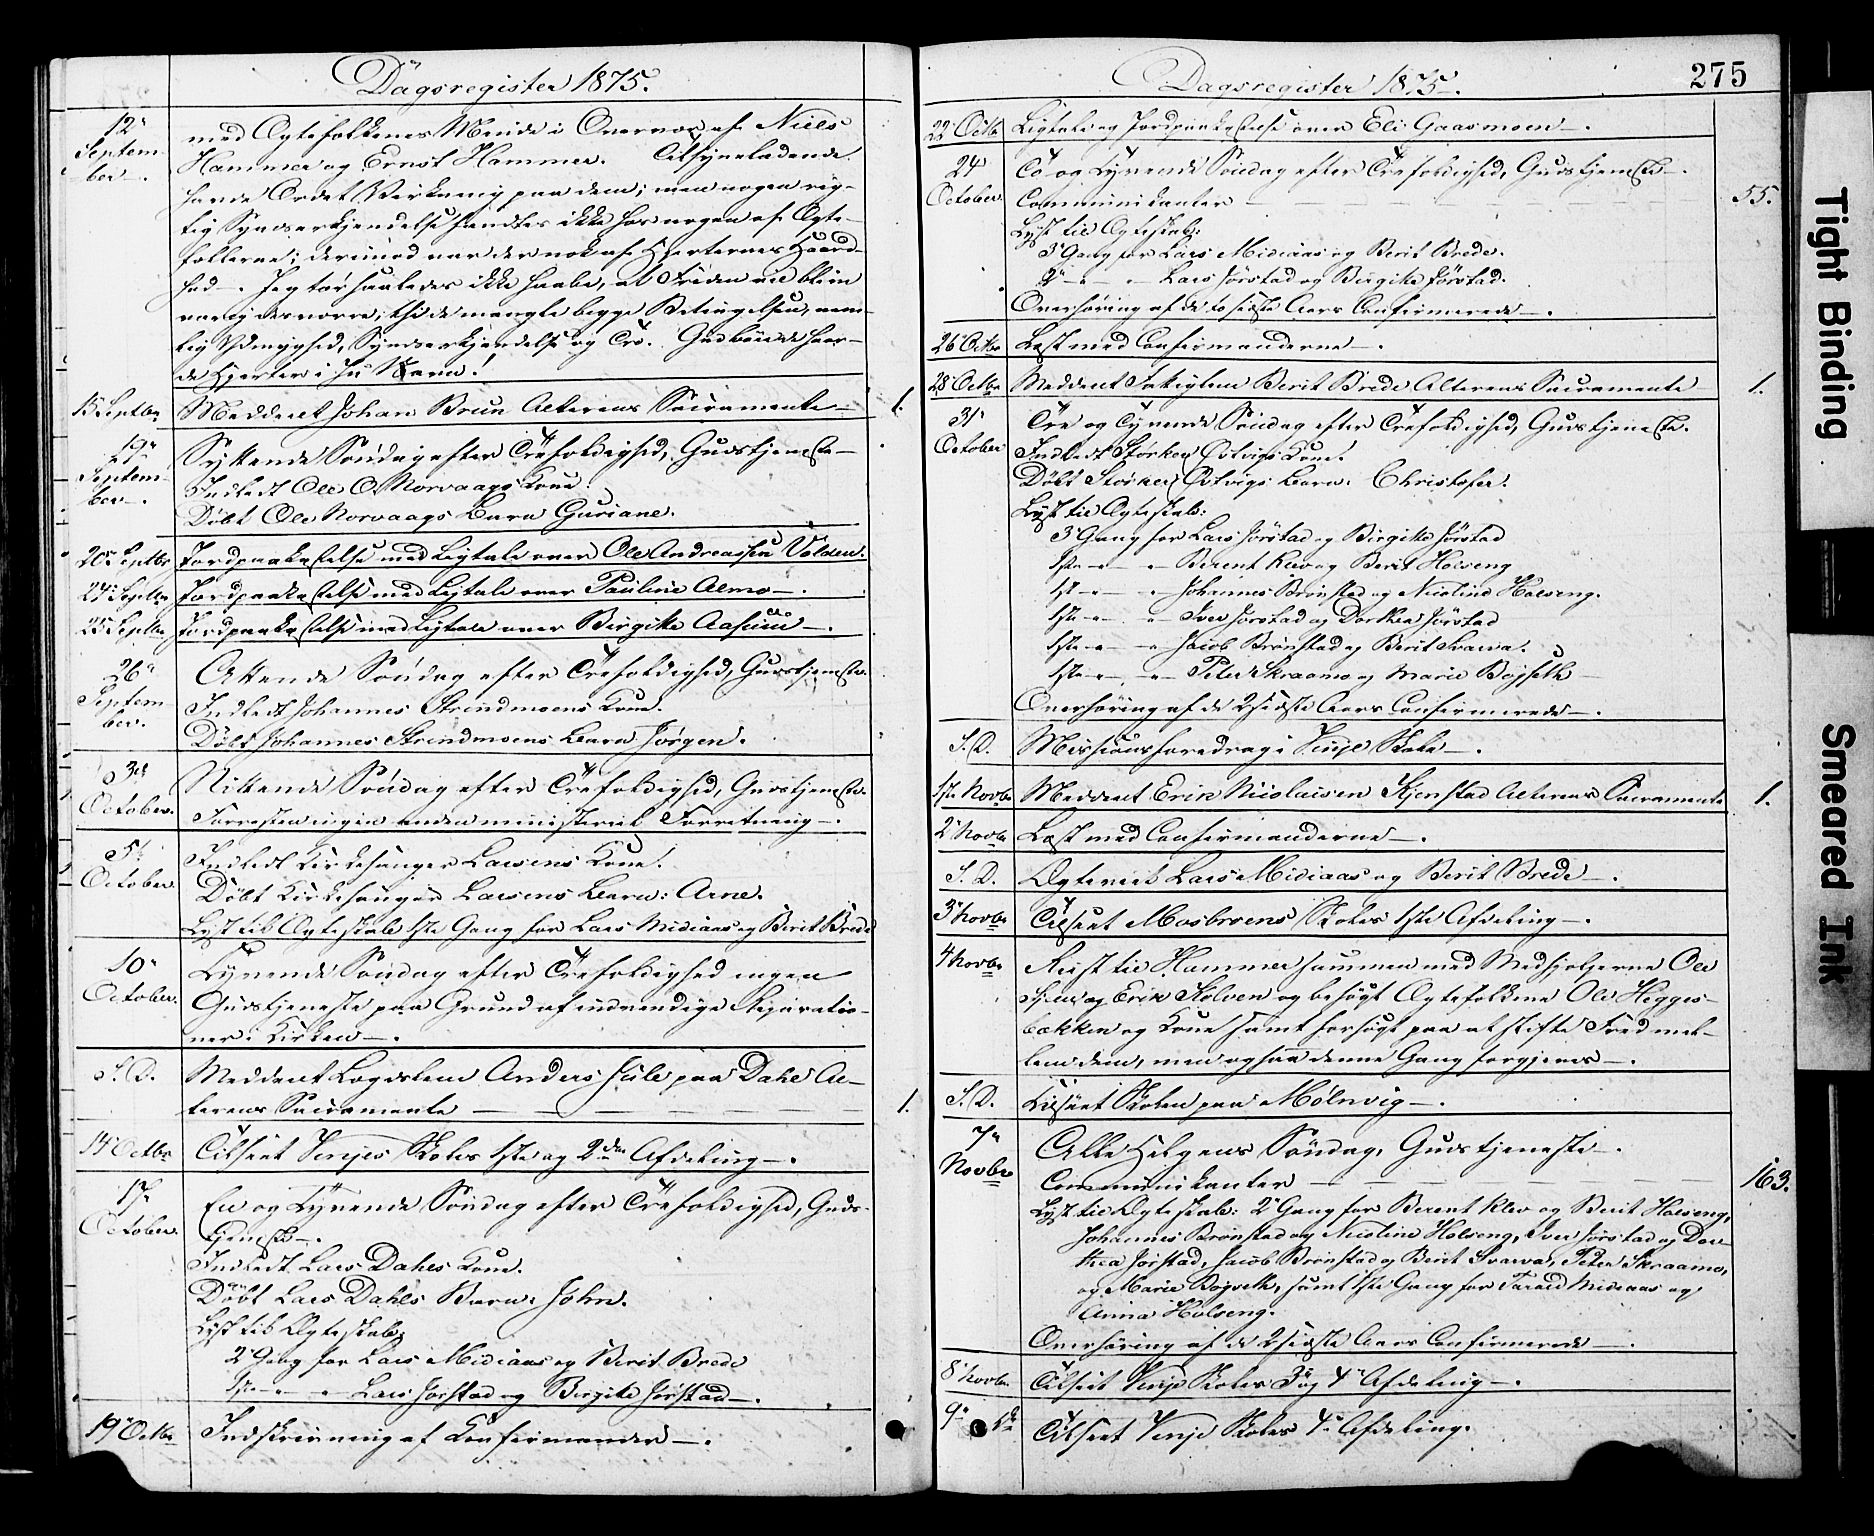 Dagsregister 1875.
12"
Septem-
ber —.
med Ægtefolkenes Minde i Overvær af Niels
Hammer og Ernst Hammer. Tilsyneladende
havde Ordet Virkning paa dem; men nogen rig-
tig Synserkjendelse fandtes ikke hos nogen af Ægte-
follerne; derimod var der nok af Hjerternes Haard-
hed —. Jeg tør saaledes ikke haabe, at Freden vil blive
varig desværre; thi de mangle begge Betingelsen, nem-
lig Ydmyghed, Syndserkjendelse og Tro. Gud bøie de haar-
de Hjerter i Ju Navn!
15 Septbr Meddeelt Johan Brun Alterens Sacramente — 1.
19"
Septem-
ber —.
Syttende Søndag efter Trefoldighed, Gudstjeneste —
Indledt Ole O. Norvaags Kone
Døbt Ole Norvaags Barn Guriane.
20 Septbr Jordpaakastelse med Ligtale over Ole Andreassen Volden.
24 Septbr Jordpaakastelse med Ligtale over Pauline Aemo —.
25 Septbr Jordpaakastelse med Ligtale over Birgitte Aasum —.
26"
Septem-
ber.
Attende Søndag efter Trefoldighed, Gudstjeneste.
Indledt Johannes Strindmoens Kone.
Døbt Johannes Strindmoens Barn Jørgen.
3die
October.
Nittende Søndag efter Trefoldighed, Gudstjeneste.
Forresten ingen anden ministeriel Forretning —.
5te
October.
Indledt Kirkesanger Larsens Kone.
Døbt Kirkesanger Larsens Barn: Arne.
Lyst til Ægteskab 1ste Gang for Lars Midiaas og Berit Brede
10"
October.
Tyvende Søndag efter Trefoldighed ingen
Gudstjeneste paa Grund af indvendige Reparatio-
ner i Kirken —.
S. D. Meddeelt Logdslem Anders Jule paa Dahl Al-
terens Sacramente — — — — 1.
14 Octbr Tilseet Vinjes Skoles 1ste og 2den Afdeling —.
17"
October.
En og Tyvende Søndag efter Trefoldighed, Guds-
tjeneste —.
Indledt Lars Dahls Kone.
Døbt Lars Dahls Barn: John.
Lyst til Ægteskab:
2" Gang for Lars Midiaas og Berit Brede
1ste — " — " Lars Jørstad og Birgitte Jørstad —.
19" Octbr Indskrivning af Konfirmander —.
Dagsregister 1875 —. 275
22" Octbr Ligtale og Jordpaakastelse over Eli Gaasmoen —.
24"
October.
To og Tyvende Søndag efter Trefoldighed, Gudstjeneste —.
Communikanter — — — — — 55.
Lyst til Ægteskab:
3" Gang for Lars Midiaas og Berit Brede.
2" — " — " — Lars Jørstad og Birgitte Jørstad.
Overhøring af de to sidste Aars Confirmerede —.
26 Octbr Læst med Confirmanderne —.
28 Octbr Meddeelt Berit Brede Alterens Sacramente 1.
31"
October
Tre og Tyvende Søndag efter Trefoldighed, Gudstjeneste.
Indledt Størker Østvigs Kone.
Døbt Størker Østvigs Barn: Christofer.
Lyst til Ægteskab:
3" Gang for Lars Jørstad og Birgitte Jørstad
1ste — " — " Berent Klev og Berit Holseng
1ste — " — " Johannes Brønstad og Nicoline Holseng.
1ste — " — " Iver Jørstad og Dorthea Jørstad
1ste — " — " Jacob Brønstad og Berit Svarva.
1ste — " — " Peter Skraamo og Marie Bøgseth —
Overhøring af de 2 sidste Aars Confirmerede —.
S. D. Missionsforedrag i Vinje Skole —.
1ste Novbr Meddeelt Erik Nicolaisen Kjenstad Alterens Sacramente 1.
2" Novbr Læst med Confirmanderne —.
S. D. Ægteviet Lars Midiaas og Berit Brede —.
3" Novbr Tilseet Mosbroens Skoles 1ste Afdeling —.
4 Novbr Reist til Hammer sammen med Medhjelperne Ole
og Erik Kolven og besøgt Ægtefolkene Ole Hegges-
bakken og Kone samt forsøgt paa at stifte Fred mel-
lem dem, men ogsaa denne Gang forgjeves —.
S. D. Tilseet Skolen paa Mølnvig —.
7"
Novbr
Alle Helgens Søndag, Gudstjeneste —.
Communikanter — — — — 163.
Lyst til Ægteskab: 2" Gang for Berent Klev og Berit Holseng,
Johannes Brønstad og Nicoline Holseng, Iver Jørstad og Dor-
thea Jørstad, Jacob Brønstad og Berit Svarva, Peter Skraamo,
og Marie Bøgseth, samt 1ste Gang for Midiaas og
Anna Holseng.
Overhøring af de 2 sidste Aars Confirmerede —.
8" Novbr Tilseet Vinje Skoles 3 og 4" Afdeling —.
9" Tilseet Vinje Skoles 4" Afdeling.
Tight Binding
Smeared Ink